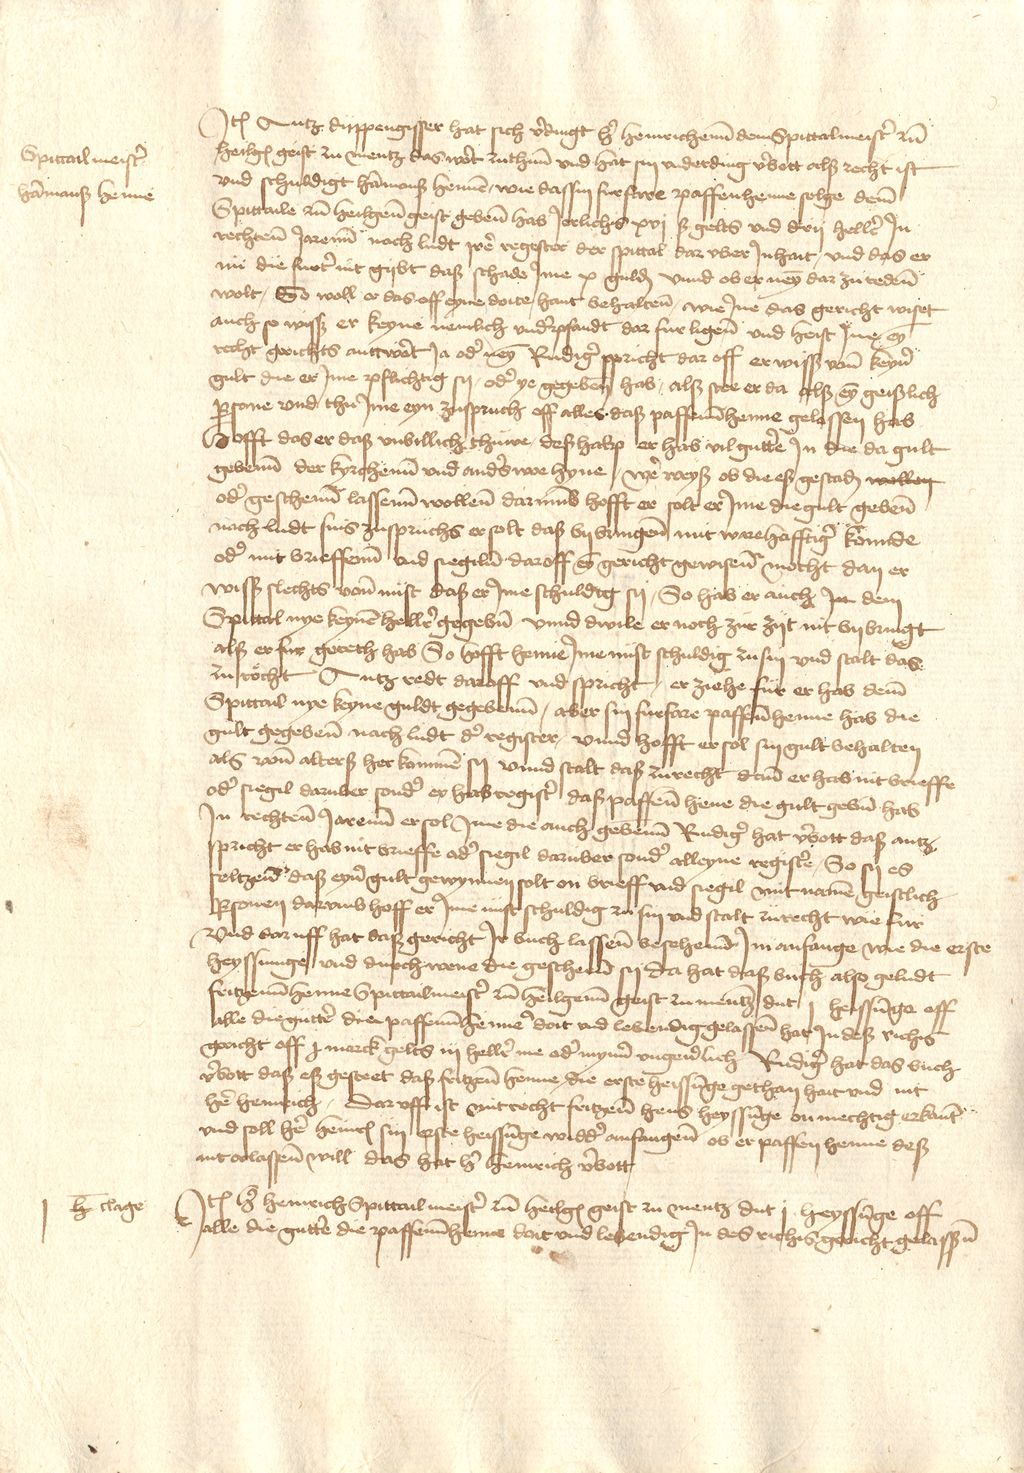 Spittail meist(er)
hãmanß henne
Itẽ Antz duppengisser hat sich v(er)dingt h(er) heinrichenn dem Spittalmeist(er) zũ
heilgẽ geist zu mentz das wort zuthun und hat sin underding v(er)bott alß recht ist
und schuldigt hãmanß hennẽ wie das sin furfare paffenhenne selge dem
Spittaile zũ heilgenn geist gebenn hab Jerlichs xvi ß gelts und drij hell(er) In
rechtenn Jarenn noch ludt ire register der spittal dar uber Inhait und das er
ime die furt(er) nit gijbt daß schade Ime x guldẽ unnd ob er neyn dar zu reden
wolt So woll er das off eyne doite hant behalten wie Ine das gericht wiset
auch so wisß er keyne nemlich und(er)pfandt dar fur ligenn und heist Ine eyn
recht gerichts anttwort Ja od(er) neyn Rudig(er) spricht dar off er wisß von keyn(er)
gult die er Ime pflichtig sij od(er) ye gegeben hab alß stee er da alß eyn geistlich
persone und thu Ime eyn zuspruch off alles daß paffenn henne gelassen hab
Hofft das er daß unbillich thuwe deßhalp er hab vil gutt(er) In die da gult
gebenn der kyrchenn und anders wo hyne wer weyß ob die eß gestadẽ wollen
od(er) geschenn lassenn wollenn darumb hofft er solt er Ime die gult gebenn
nach ludt sins zuspruchs er solt daß bij bringen mit warhafftig(er) konde
od(er) mit brieffenn und siegiln daroff eyn gericht gewisenn mocht dan er
wisß slechts von nust daß er Ime schuldig sij So hab er auch In dem
Spittal nye keynẽ hell(er) gegebñ unnd dwile er noch zur zijt nit bij bringt
alß er fur geretth hab So hofft henne Ime nust schuldig zu sin und stalt das
zu recht Antz redt daroff und spricht er ziehe fur er hab dem
Spittail nye keyne guldt gegebenn aber sin furfare paffenn henne hab die
gult gegebenn nach ludt d(er) register unnd hofft er sol sin gult behalten
als von alters herkommẽ sij unnd stalt daß zu recht dan er hab nit brieffe
od(er) siegil daruber sond(er) er hab regist(er) daß paffenn henne die gult gebñ hab
In rechtenn Jarenn er sol Ime die auch gebenn Rudig(er) hat v(er)bott daß antz
spricht er hab nit brieffe od(er) siegil daruber sond(er) alleyne registre So sij es
seltzenn daß eyn(er) gult gewynnen solt on brieff und siegil mit namẽ geistlich
personen darumb hoff er Ime nust schuldig zu sin und stalt zu recht wie fur
Und dar uff hat daß gericht Ir buch lassenn besehenn Im anfange wie die erste
heyssunge und durch wene die geschenn sij Da hat daß buch also geludt
fritzenn henne Spittailmeist(er) zũ heilgenn geist zu mentz dut j heissũge off
alle die gutt(er) die paffenn henne doit und lebendig gelassenn hat In deß richs
gericht off j marck gelts iij hell(er) me od(er) mynn(er) ungeu(er)lich Rudig(er) hat das buch
v(er)bott daß eß gesteet daß fritzenn henne die erste heissũge gethan hait und nit
her heinrich Dar uff ist mit recht fritzenn hens heyssũge onmechtig erkant
und soll her heinrẽ sin erste heissũge widd(er) anfangenn ob er paffen henne deß
nit erlassenn will das hat h(er) heinrich v(er)bott
j h clage
Itẽ h(er) heinrich Spittailmeist(er) zũ heilgẽ geist zu mentz dut j heyssũge off
alle die gutt(er) die paffenn henne doit und lebendig In des richs gericht gelassẽ